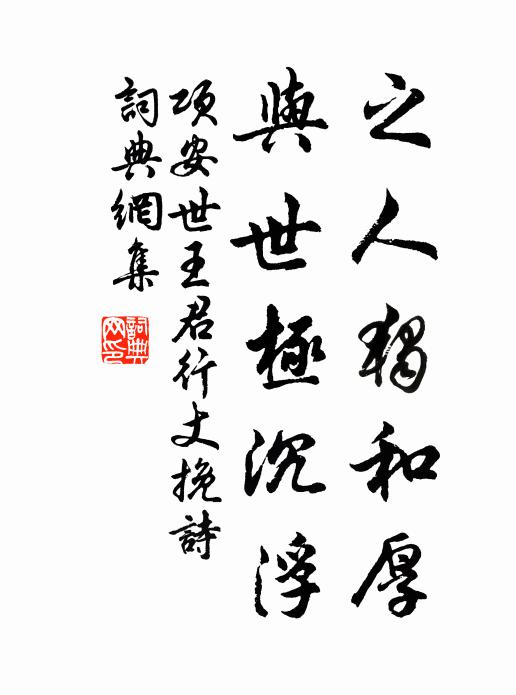 之人獨和厚
與世極沉浮
項安世王君行丈挽詩
詞典網集
詞典網印